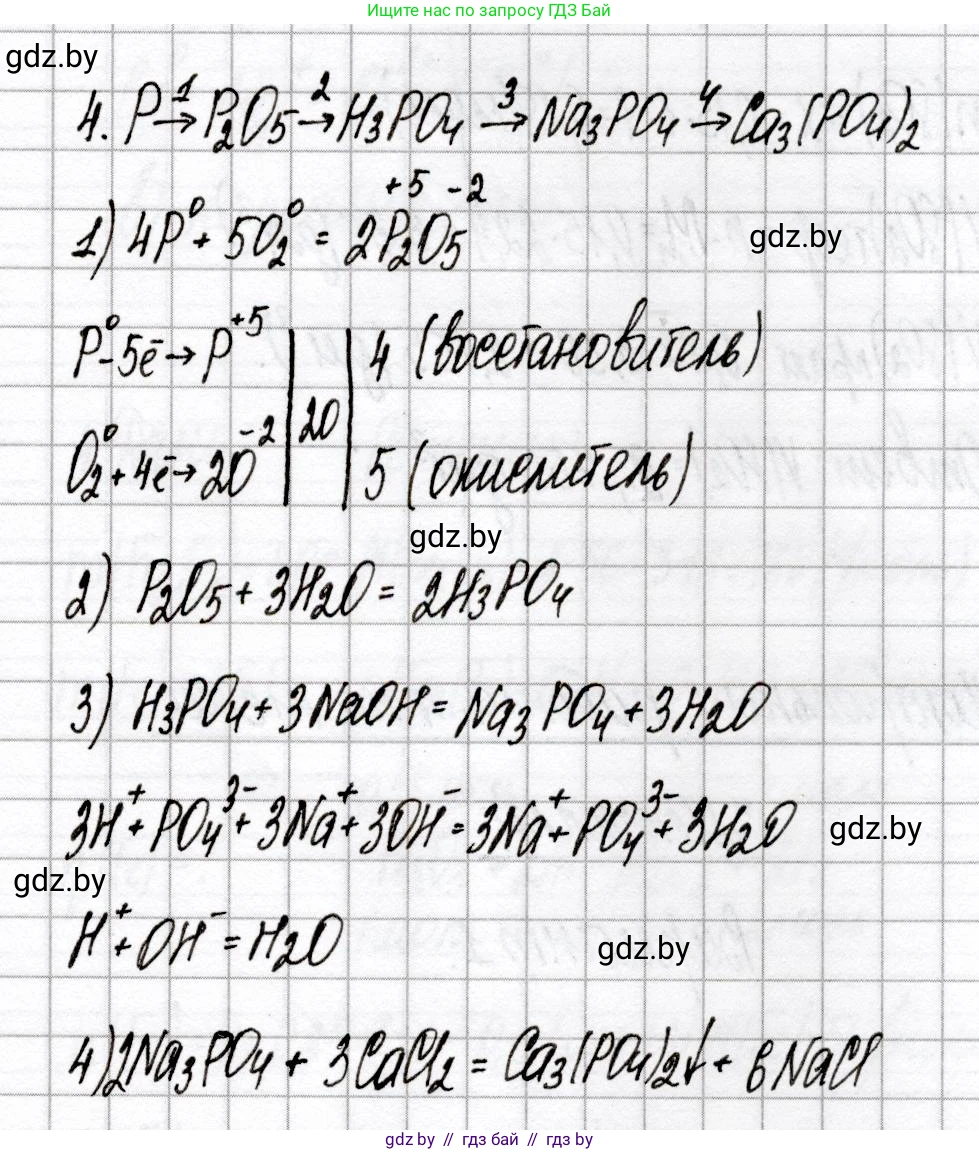 Ищите нас по запросу ГДЗ Бай
gdz.by
4. P →¹ P₂O₅ →² H₃PO₄ →³ Na₃PO₄ →⁴ Ca₃(PO₄)₂
+5 -2
1) 4P⁰ + 5O₂⁰ = 2P₂O₅
gdz.by
P⁰ - 5ē → P⁺⁵ | | 4 (восстановитель)
20
O₂⁰ + 4ē → 2O⁻² | | 5 (окислитель)
gdz.by
2) P₂O₅ + 3H₂O = 2H₃PO₄
3) H₃PO₄ + 3NaOH = Na₃PO₄ + 3H₂O
3H⁺ + PO₄³⁻ + 3Na⁺ + 3OH⁻ = 3Na⁺ + PO₄³⁻ + 3H₂O
gdz.by
gdz.by
H⁺ + OH⁻ = H₂O
gdz.by
4) 2Na₃PO₄ + 3CaCl₂ = Ca₃(PO₄)₂↓ + 6NaCl
gdz.by // гдз бай // гдз by